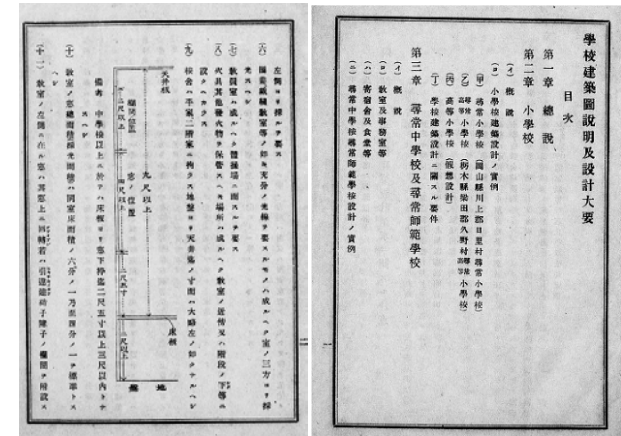 學校建築圖說明及設計大要
目次
第一章　總說
第二章　小學校
（イ）概說
（ロ）小學校建築設計ノ實例
（甲）尋常小學校（岡山縣川上郡日里村尋常小學校）
（乙）尋常高等小學校（栃木縣梁田郡久野村尋常高等小學校）
（丙）高等小學校（假想設計）
（丁）學校建築設計ニ關スル要件
第三章　尋常中學校及尋常師範學校
（イ）概說
（ロ）教室及事務室等
（ハ）寄宿舍及食堂等
（ニ）尋常中學校尋常師範學校設計ノ實例
一
左側ヨリ採ルヲ要ス
（六）圖畫裁縫教室等ノ如キ充分ノ光線ヲ要スルモノハ成ルヘク室ノ三方ヨリ採光スヘシ
（七）教員室ハ成ルヘク體操場ニ面スルヲ要ス
（八）火具其他發火物ヲ保管スヘキ場所ハ成ルヘク教室ノ近傍又ハ階段ノ下等ニ設クヘカラス
（九）校舍ハ平家二階家ニ拘ラス地盤ヨリ天井迄ノ寸面ハ大略左ノ如クナルヘシ
天井板
二尺以上
欄間位置
九尺以上
窓ノ位置
二尺五寸
床板
二尺以上
地盤
備考　中學校以上ニ於テハ床板ヨリ窓下枠迄二尺五寸以上三尺以内トナスヘシ
（十）教室ノ窓總面積採光面積ハ同室床面積ノ六分ノ一乃至四分ノ一ヲ標準トスヘシ
（十一）教室ノ左側ニ在ル窓ハ其窓上ニ回轉若ハ引違硝子障子ノ欄間ヲ附設ス
二